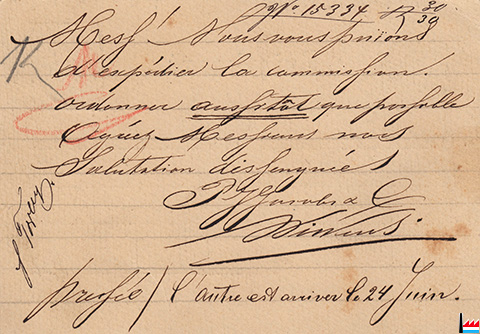 No 15334
30
30
Mess! Nous vous priions
d'expédier la commission.
ordonner aussitôt que possible
Agréez Messieurs nos
Salutation dissenguées
Jacobs & C
pressée / l'autre est arriver le 24 Juin.